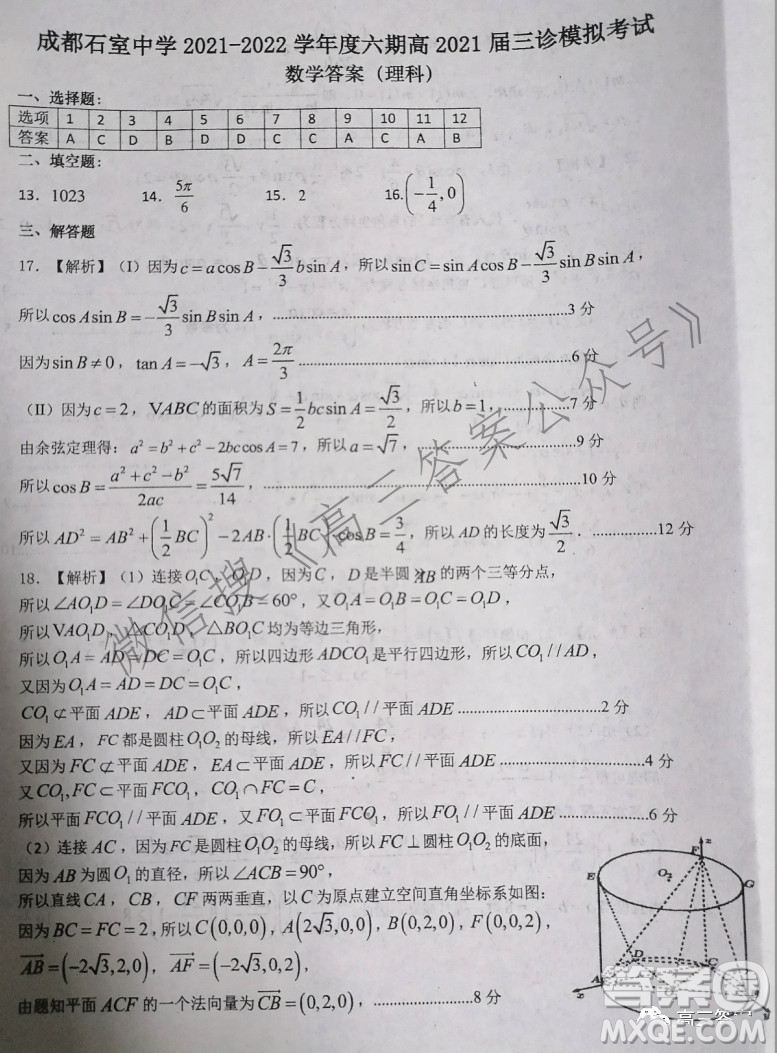 成都石室中学 2021-2022 学年度六期高 2021 届三诊模拟考试
数学答案（理科）
一、选择题：
选项 1 2 3 4 5 6 7 8 9 10 11 12
答案 A C D B D D C C A C A B
二、填空题：
13．1023 14．5π/6 15．2 16.(-1/4,0)
三、解答题
17．【解析】（I）因为c=acosB-(√3/3)bsinA，所以sinC=sinAcosB-(√3/3)sinBsinA，
所以cosAsinB=-(√3/3)sinBsinA，......3 分
因为sinB≠0，tanA=-√3，A=2π/3......6 分
（II）因为c=2，VABC的面积为S=(1/2)bcsinA=√3/2，所以b=1，......7 分
由余弦定理得：a²=b²+c²-2bccosA=7，所以a=√7，......9 分
所以cosB=(a²+c²-b²)/2ac=5√7/14，......10 分
所以AD²=AB²+((1/2)BC)²-2AB·((1/2)BC)cosB=3/4，所以AD的长度为√3/2．......12 分
18．【解析】（1）连接O₁C，O₁D，因为C，D是半圆AB的两个三等分点，
所以∠AO₁D=∠DO₁C=∠CO₁B=60°，又O₁A=O₁B=O₁C=O₁D，
所以VAO₁D，△CO₁D，△BO₁C均为等边三角形，
所以O₁A=AD=DC=O₁C，所以四边形ADCO₁是平行四边形，所以CO₁//AD，
又因为O₁A=AD=DC=O₁C，
CO₁⊄平面ADE，AD⊂平面ADE，所以CO₁//平面ADE......2 分
因为EA，FC都是圆柱O₁O₂的母线，所以EA//FC，
又因为FC⊄平面ADE，EA⊂平面ADE，所以FC//平面ADE......4 分
又CO₁,FC⊂平面FCO₁，CO₁∩FC=C，
所以平面FCO₁//平面ADE，又FO₁⊂平面FCO₁，所以FO₁//平面ADE......6 分
（2）连接AC，因为FC是圆柱O₁O₂的母线，所以FC⊥圆柱O₁O₂的底面，
因为AB为圆O₁的直径，所以∠ACB=90°，
所以直线CA，CB，CF两两垂直，以C为原点建立空间直角坐标系如图：
因为BC=FC=2，所以C(0,0,0)，A(2√3,0,0)，B(0,2,0)，F(0,0,2)，
AB=(-2√3,2,0)，AF=(-2√3,0,2)，
由题知平面ACF的一个法向量为CB=(0,2,0)，......8 分
z
F
E
O₂
G
D
C
A
x
微信搜《高三答案公众号》
答案
高三答
MXQE.COM